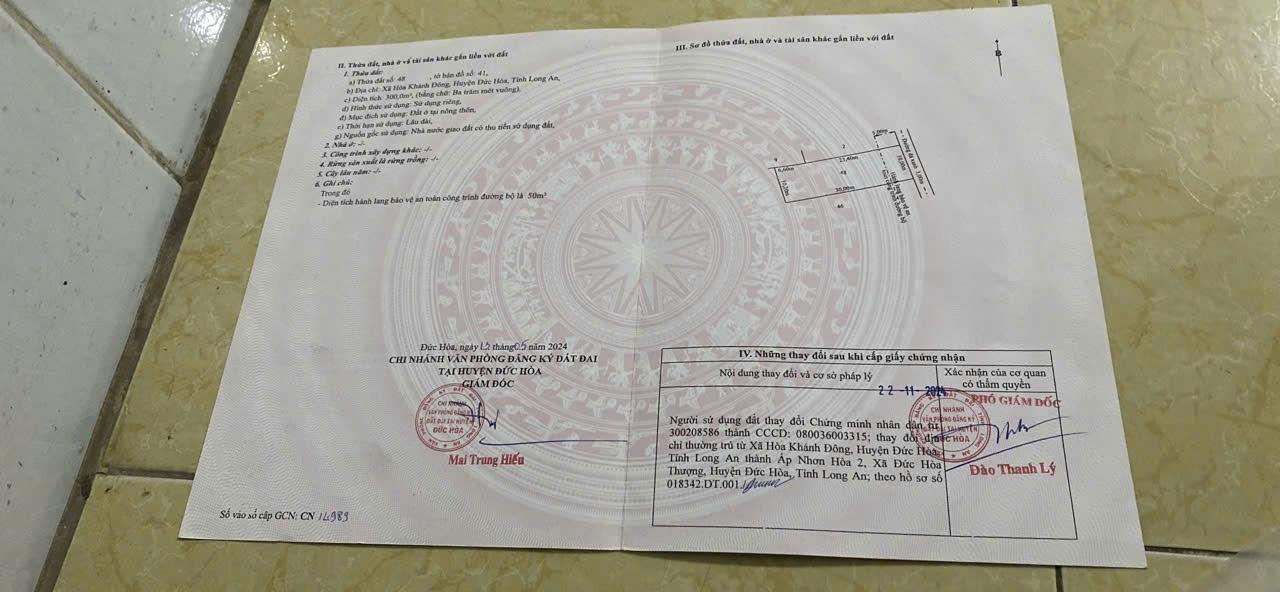 II. Thửa đất, nhà ở và tài sản khác gắn liền với đất
1. Thửa đất:
a) Thửa đất số: 48 , tờ bản đồ số: 41,
b) Địa chỉ: Xã Hòa Khánh Đông, Huyện Đức Hòa, Tỉnh Long An,
c) Diện tích: 300,0m², (bằng chữ: Ba trăm mét vuông),
d) Hình thức sử dụng: Sử dụng riêng,
đ) Mục đích sử dụng: Đất ở tại nông thôn,
e) Thời hạn sử dụng: Lâu dài,
g) Nguồn gốc sử dụng: Nhà nước giao đất có thu tiền sử dụng đất,
2. Nhà ở: -/-
3. Công trình xây dựng khác: -/-
4. Rừng sản xuất là rừng trồng: -/-
5. Cây lâu năm: -/-
6. Ghi chú:
Trong đó
- Diện tích hành lang bảo vệ an toàn công trình đường bộ là 50m²
Đức Hòa, ngày 12 tháng 05 năm 2024
CHI NHÁNH VĂN PHÒNG ĐĂNG KÝ ĐẤT ĐAI
TẠI HUYỆN ĐỨC HÒA
GIÁM ĐỐC
CHI NHÁNH
VĂN PHÒNG ĐĂNG KÝ
ĐẤT ĐAI TẠI HUYỆN
ĐỨC HÒA
Mai Trung Hiếu
Số vào sổ cấp GCN: CN 14989
III. Sơ đồ thửa đất, nhà ở và tài sản khác gắn liền với đất
B
5,00m
2
9
6,60m
23,40m
48
10,00m
30,00m
46
Đường đá xanh 3,00m
Hành lang bảo vệ an
toàn công trình đường bộ
IV. Những thay đổi sau khi cấp giấy chứng nhận
Nội dung thay đổi và cơ sở pháp lý
Xác nhận của cơ quan
có thẩm quyền
22-11-2024
Người sử dụng đất thay đổi Chứng minh nhân dân từ
300208586 thành CCCD: 080036003315; thay đổi địa
chỉ thường trú từ Xã Hòa Khánh Đông, Huyện Đức Hòa,
Tỉnh Long An thành Ấp Nhơn Hòa 2, Xã Đức Hòa
Thượng, Huyện Đức Hòa, Tỉnh Long An; theo hồ sơ số
018342.DT.001.
PHÓ GIÁM ĐỐC
CHI NHÁNH
VĂN PHÒNG ĐĂNG KÝ
ĐẤT ĐAI TẠI HUYỆN
ĐỨC HÒA
Đào Thanh Lý